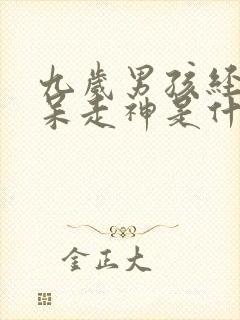 九歲男孩經
呆走神是什
金正大